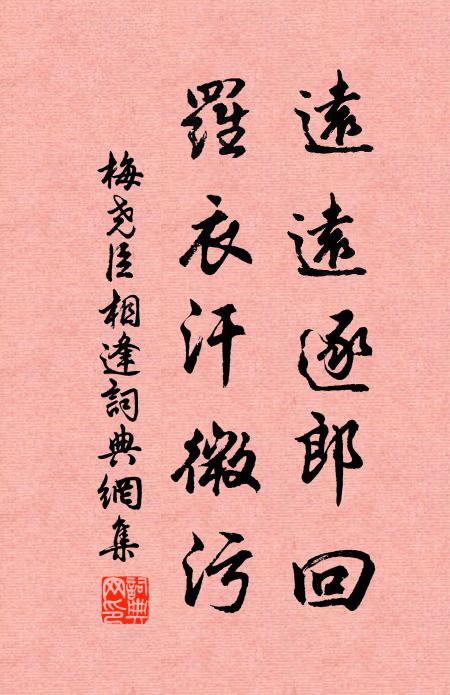 遠遠逐郎回
羅衣汗微污
梅尧臣相逢詞典網集
詞典網印